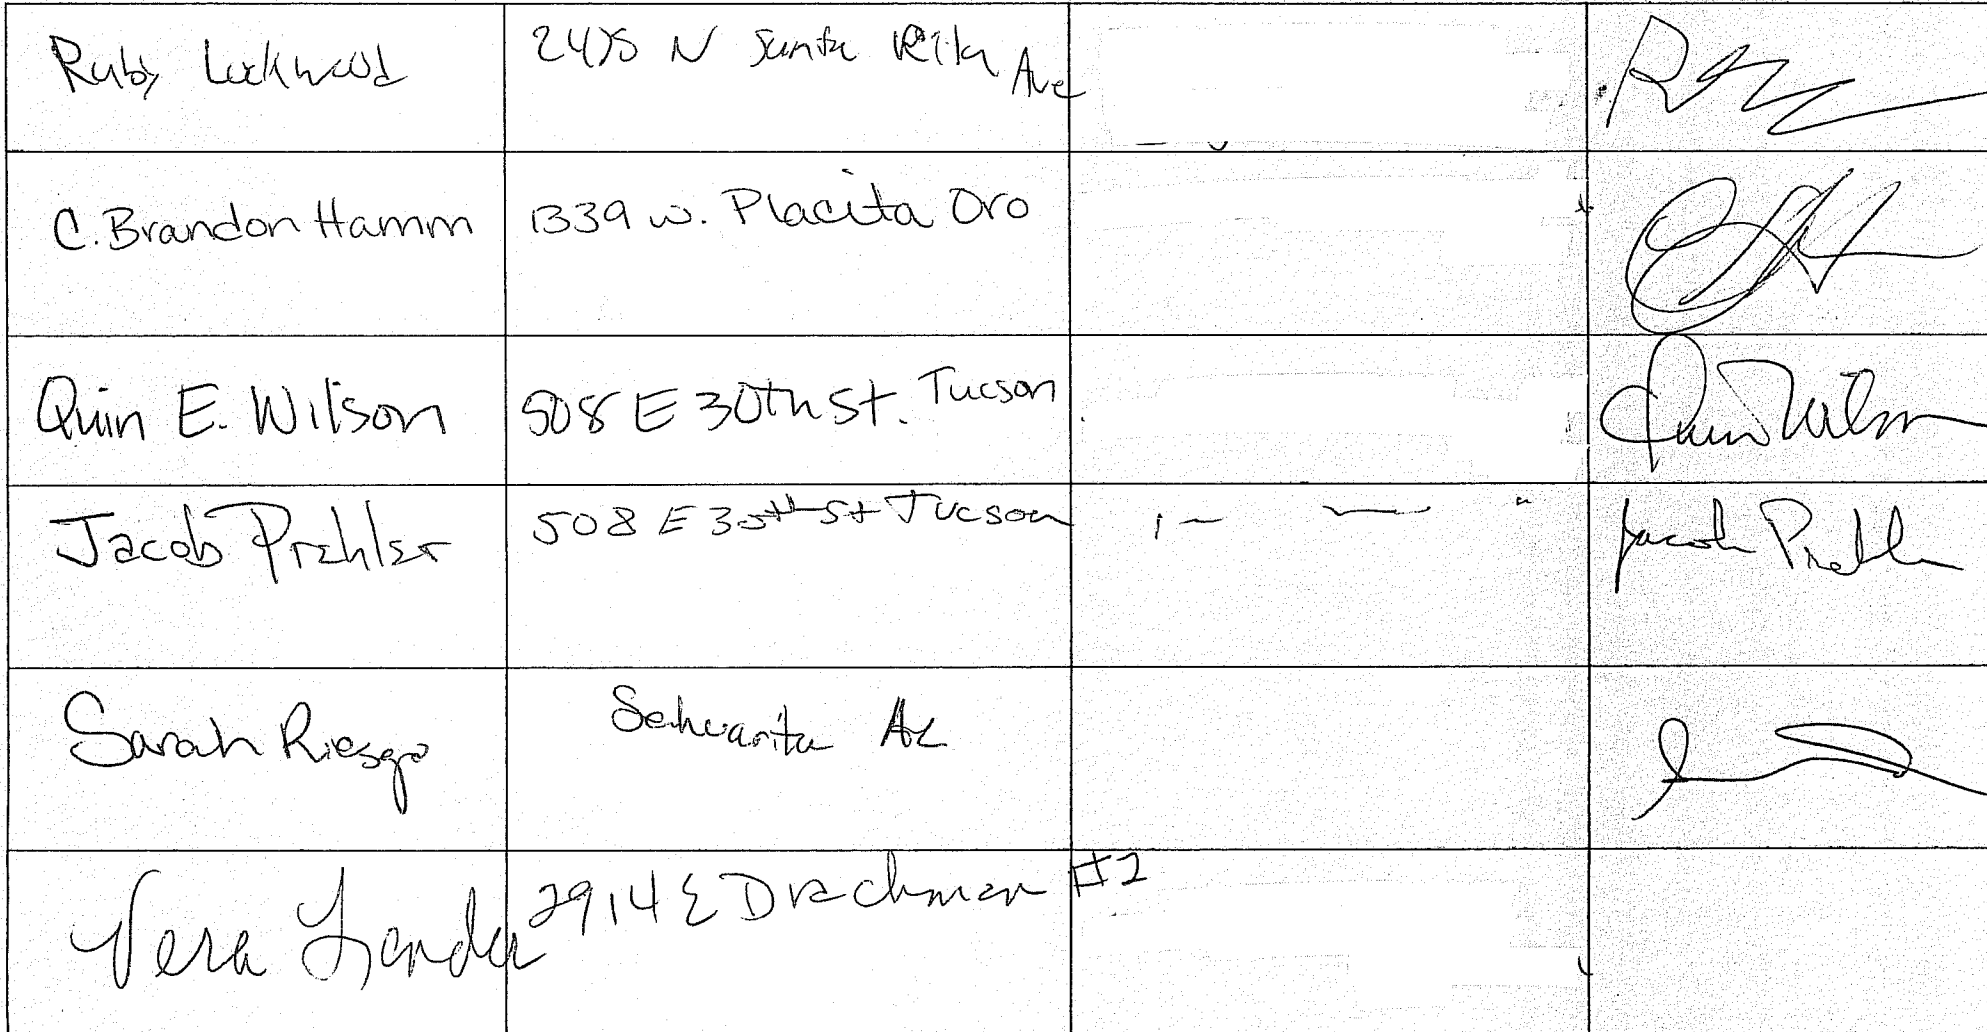 Ruby Lockwood 2475 N Santa Rita Ave
C. Brandon Hamm 1339 w. Placita Oro
Quin E. Wilson 508 E 30th St. Tucson Quin Wilson
Jacob Prehler 508 E 30th St Tucson Jacob Prehler
Sarah Riesgo Sahuarita Az
Vera 2914 E Drachman #2